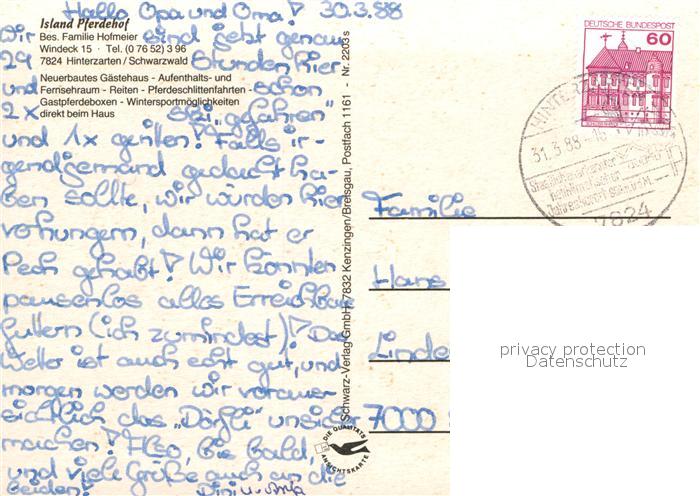 Hallo Opa und Oma! 30.3.88
Island Pferdehof
Bes. Familie Hofmeier
Windeck 15 · Tel. (0 76 52) 3 96
7824 Hinterzarten / Schwarzwald
Neuerbautes Gästehaus - Aufenthalts- und
Fernsehraum - Reiten - Pferdeschlittenfahrten -
Gastpferdeboxen - Wintersportmöglichkeiten
direkt beim Haus
Wir sind jetzt genau
29 Stunden hier
und schon
2x Ski „gefahren"
und 1x geritten! Falls ir-
gendjemand gedacht ha-
ben sollte, wir würden hier
verhungern, dann hat er
Pech gehabt! Wir könnten
pausenlos alles Erreichbare
futtern (ich zumindest)! Das
Wetter ist auch echt gut, und
morgen werden wir voraus-
sichtlich das „Dörfli" unsicher
machen! Also, bis bald,
und viele Grüße auch an die
beiden!
Schwarz-Verlag GmbH, 7832 Kenzingen/Breisgau, Postfach 1161 - Nr. 2203 s
DIE QUALITÄTS
ANSICHTSKARTE
DEUTSCHE BUNDESPOST
60
31.3.88
7824
Familie
Hans
Linde
7000
privacy protection
Datenschutz